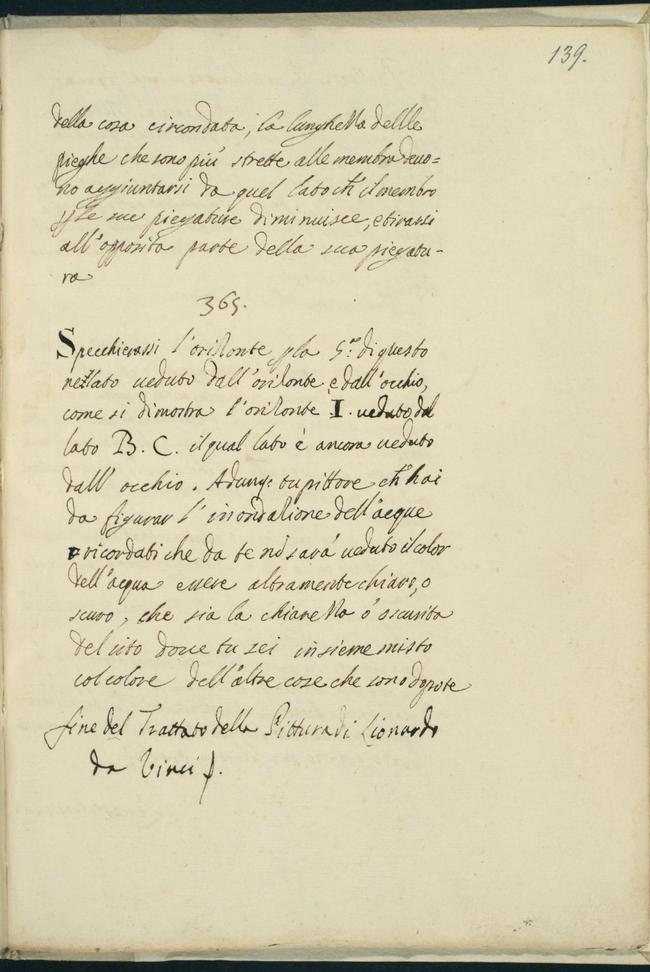 139.
della cosa circondata, la lunghezza dellle
pieghe che sono più strette alle membra deuo=
no aggiuntarsi da quel lato ch' il membro
p le sue piegature diminuisce, e tirarsi
all'opposita parte della sua piegatu-
ra
365.
Specchierassi l'orizonte p la 5.ª di questo
nel lato ueduto dall'orizonte, e dall'occhio,
come si dimostra l'orizonte I. ueduto dal
lato B. C. il qual lato è ancora ueduto
dall' occhio. Adunq; tu pittore ch' hai
da figurar l'inondazione dell'acque
ricordati che da te nō sará ueduto il color
dell'acqua essere altramente chiaro, o
scuro, che sia la chiarezza o' oscurità
del sito doue tu sei insieme misto
col colore dell'altre cose che sono dopo te
fine del Trattato della Pittura di Lionardo
da Vinci